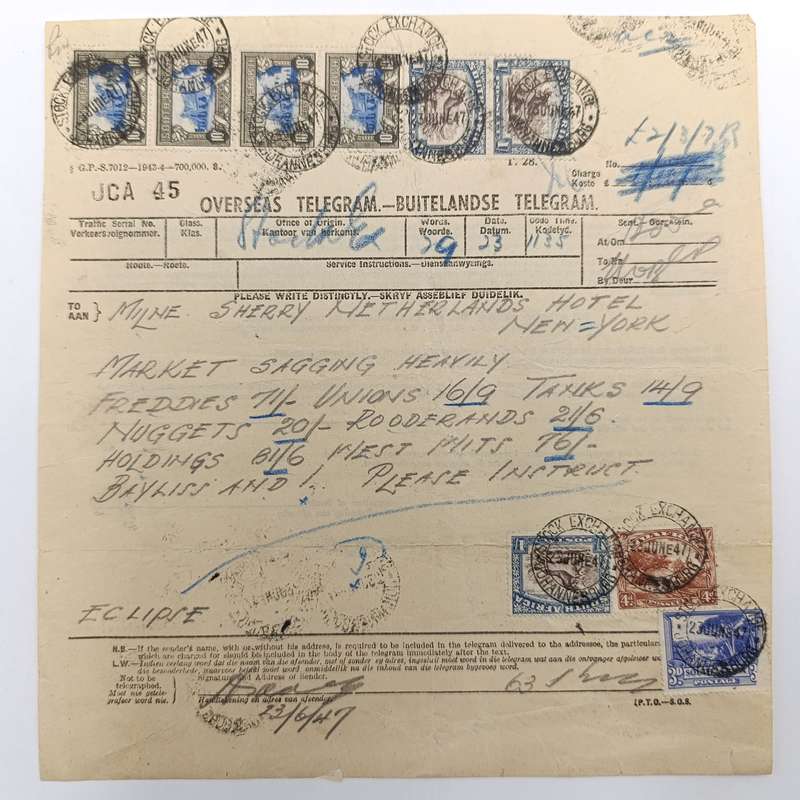 STOCK EXCHANGE
23 JUNE 47
JOHANNESBURG
£2/3/7
G.P.-S.7012-1943-4-700,000. S.
T. 28.
Charge
Koste
No.
JCA 45
OVERSEAS TELEGRAM.—BUITELANDSE TELEGRAM.
Traffic Serial No.
Verkeersvolgnommer.
Class.
Klas.
Office of Origin.
Kantoor van herkoms.
Words.
Woorde.
29
Date.
Datum.
23
Code Time.
Kodetyd.
1135
Sent.
At/Om
To/Na
By/Deur
Route.—Roete.
Service Instructions.—Diensaanwysings.
PLEASE WRITE DISTINCTLY.—SKRYF ASSEBLIEF DUIDELIK.
TO
AAN } MILNE SHERRY NETHERLANDS HOTEL
NEW=YORK
MARKET SAGGING HEAVILY
FREDDIES 71/- UNIONS 16/9 TANKS 14/9
NUGGETS 20/- ROODERANDS 21/6
HOLDINGS 81/6 WEST WITS 76/-
BAYLISS AND I.. PLEASE INSTRUCT.
STOCK EXCHANGE
23 JUNE 47
JOHANNESBURG
SOUTH AFRICA
POSTAGE
ECLIPSE
N.B.—If the sender's name, with or without his address, is required to be included in the telegram delivered to the addressee, the particular
which are charged for should be included in the body of the telegram immediately after the text.
L.W.—Indien verlang word dat die naam van die afsender, met of sonder sy adres, ingesluit moet word in die telegram wat aan die ontvanger afgelewer
die besonderhede, waarvoor betaal moet word, onmiddellik na die inhoud van die telegram bygevoeg word.
Not to be
telegraphed.
Moet nie getele-
grafeer word nie.
Signature and Address of Sender.
Handtekening en adres van afsender
23/6/47
(P.T.O.—S.O.S.